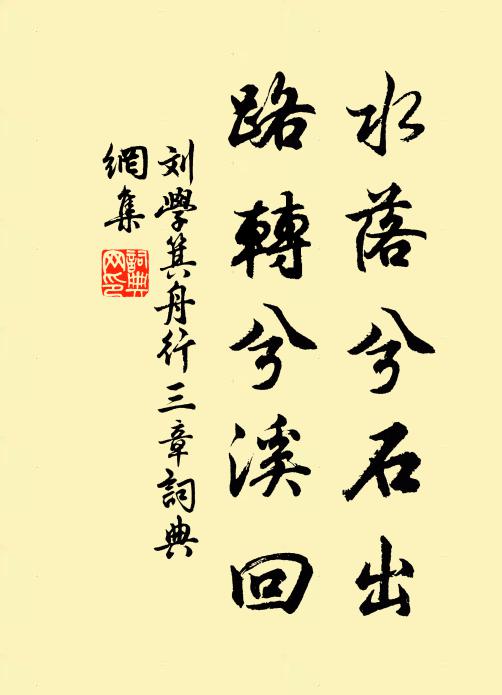 水落兮石出
路轉兮溪回
刘學箕舟行三章詞典
網集
詞典
网印